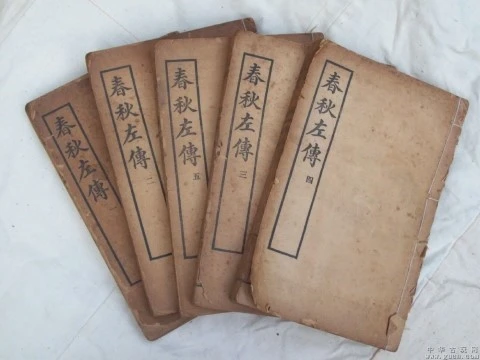 春秋左傳
春秋左傳 二
春秋左傳 五
春秋左傳 三
春秋左傳 四
中华古玩网